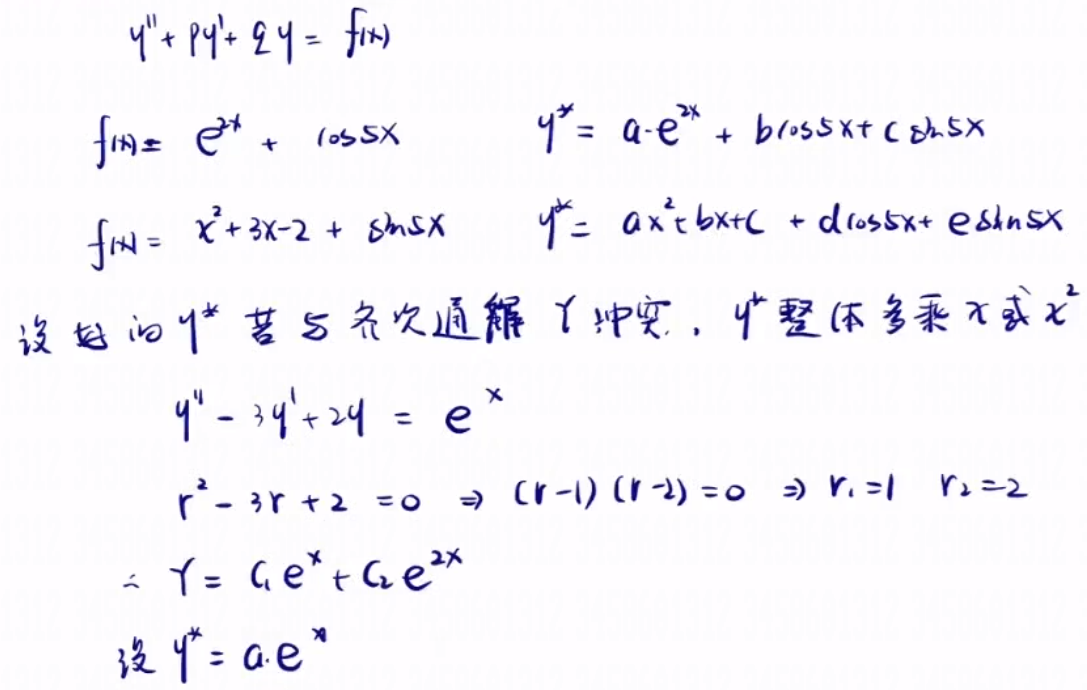 y''+py'+qy=f(x)
f(x)= e^{2x} + cos5x y*= a·e^{2x} + bcos5x+c sin5x
f(x)= x²+3x-2 + sin5x y*= ax²+bx+c + dcos5x+ esin5x
设好的 y* 若与齐次通解 Y 冲突, y* 整体多乘 x 或 x²
y''-3y'+2y = e^x
r²-3r+2=0 ⇒ (r-1)(r-2)=0 ⇒ r₁=1 r₂=2
∴ Y= C₁e^x+C₂e^{2x}
设 y*= a·e^x